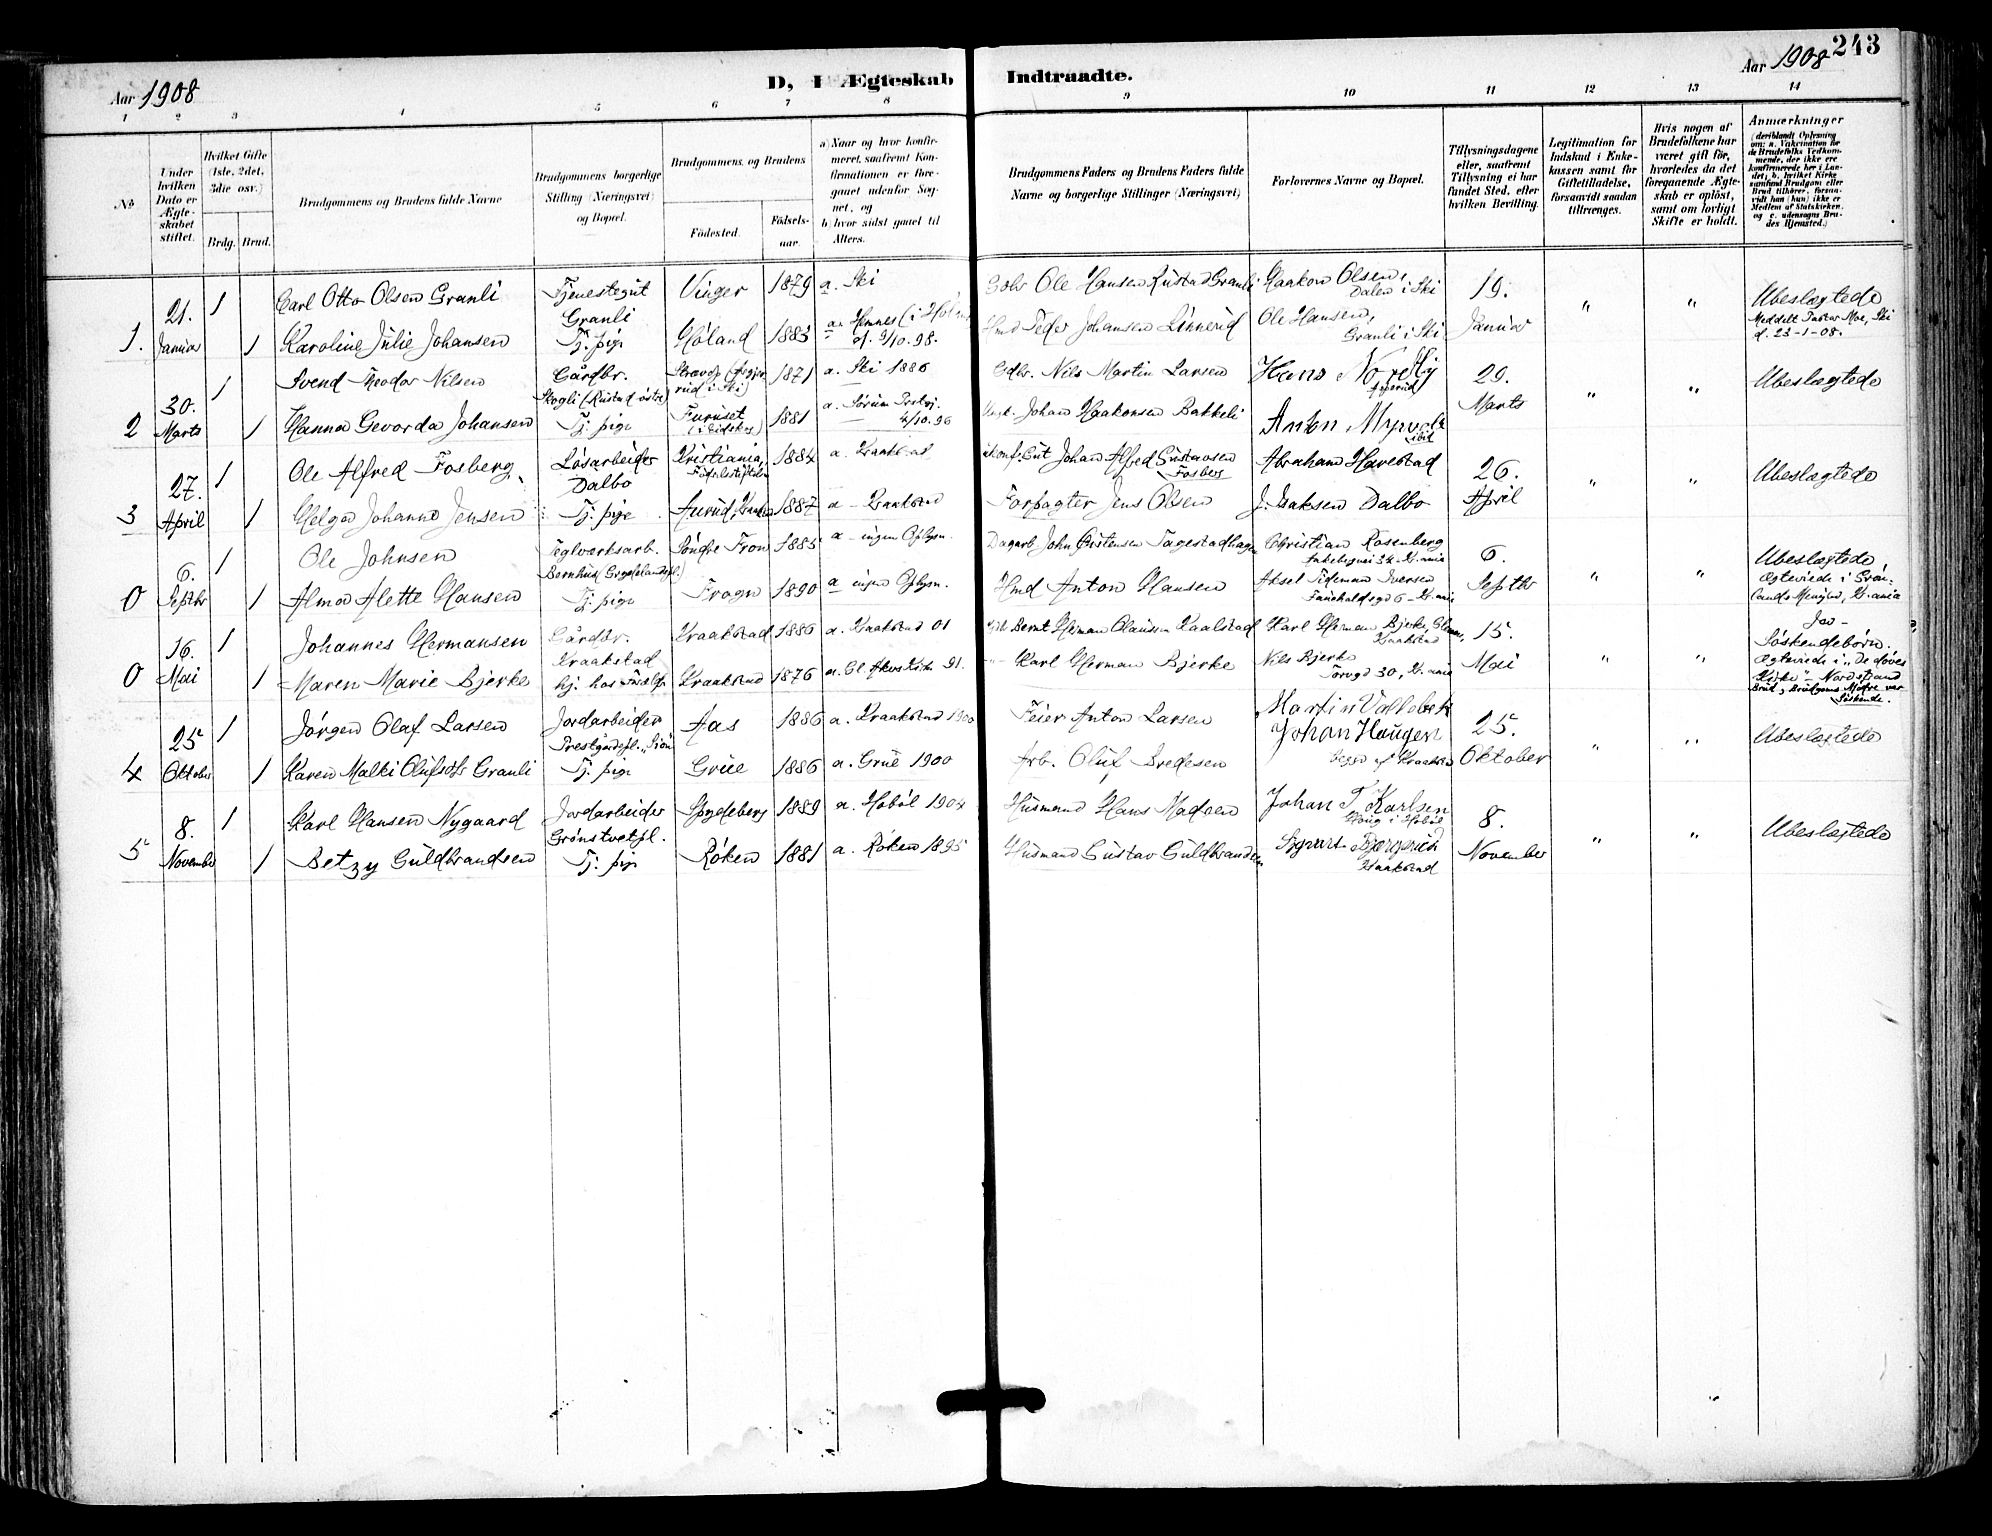 Aar 1908
D, I Ægteskab Indtraadte.
Aar 1908 243
1 2 3 4 5 6 7 8 9 10 11 12 13 14
No
Under hvilken Dato er Ægteskabet stiftet.
Hvilket Gifte (1ste, 2det, 3die osv.)
Brdg. Brud.
Brudgommens og Brudens fulde Navne
Brudgommens borgerlige Stilling (Næringsvei) og Bopæl.
Brudgommens og Brudens
Fødested.
Fødselsaar.
a) Naar og hvor konfirmeret, saafremt Konfirmationen er foregaaet udenfor Sognet, og
b) hvor sidst gaaet til Alters.
Brudgommens Faders og Brudens Faders fulde Navne og borgerlige Stillinger (Næringsvei)
Forlovernes Navne og Bopæl.
Tillysningsdagene eller, saafremt Tillysning ei har fundet Sted, efter hvilken Bevilling.
Legitimation for Indskud i Enkekassen samt for Giftetilladelse, forsaavidt saadan tiltrænges.
Hvis nogen af Brudefolkene har været gift før, hvorledes da det foregaaende Ægteskab er opløst, samt om lovligt Skifte er holdt.
Anmærkninger (deriblandt Oplysning om: a. Vakcination for de Brudefolks Vedkommende, der ikke ere konfirmerede her i Landet, b. hvilket Kirkesamfund Brudgom eller Brud tilhører, forsaavidt han (hun) ikke er Medlem af Statskirken, og c. udensogns Brudes Hjemsted.)
1. 21. Januar 1 Carl Otto Olsen Granli Tjenestegut Granli Vinger 1879 a. Ski Ole Hansen Rustad Granli Haakon Olsen, Dalen i Ski 19. Januar " " Ubeslægtede
Meddelt Pastor Moe, Ski d. 23-1-08.
1 Karoline Julie Johansen Tj. pige Høland 1883 a. Hemnes (i Høland) 2/10.98. Hmd Peder Johansen Linnerud Ole Hansen, Granli i Ski
2 30. Marts 1 Svend Theodor Nilsen Gårdbr. Skogli (Rustad østre) 1871 a. Ski 1886 Gdbr. Nils Martin Larsen Hans Nordly 29. Marts " " Ubeslægtede
1 Hanna Gevorda Johansen Tj. pige Furuset (i Eidskog) 1881 a. Sørum 4/10.96 Johan Haakonsen Bakkeli Anton Myrvold ibid
3 27. April 1 Ole Alfred Fosberg Løsarbeider Dalbo Kristiania, Fødselsstiftelsen 1884 a. Kraakstad Johan Alfred Gustavsen Fosberg Abraham Harestad 26. April " " Ubeslægtede
1 Helga Johanne Jensen Tj. pige 1887 a - Kraakstad Forpagter Jens Olsen J. Isaksen Dalbo
0 6. Septbr 1 Ole Johnsen Teglværksarb. Bernhus (Grydelandspl.) Søndre Fron 1885 a - ingen Oplysn. Dagarb. John Cristensen Tagestadhagen Christian Rosenberg Ankebegvei 34 Kr.ania 6. Septbr " " Ubeslægtede
Ægteviede i Grønlands Menighed, Kr.ania
1 Alma Alette Hansen Tj. pige Frogn 1890 a ingen Oplysn. Hmd Anton Hansen Aksel Tidemann Iversen 6 - Kr.ania
0 16. Mai 1 Johannes Hermansen Gårdbr. Kraakstad Kraakstad 1886 a. Kraakstad 01 Bernt Herman Clausen Kaalstad Karl Herman Bjerke, Kraakstad 15. Mai " " Jas -
Søskendebørn.
Ægteviede i "De døves Kirke" - Nordstrand
Brud & Brudgoms Mødre var Søskende.
1 Maren Marie Bjerke hj. hos Forældr. Kraakstad 1876 a. Gl. Akers Kirke 91. - " - Karl Herman Bjerke Nils Bjerke Torvgd 30, Kr.ania
4 25 Oktober 1 Jørgen Olaf Larsen Jordarbeider Prestgårdspl., Aas 1886 a. Kraakstad 1900 Feier Anton Larsen Martin Vallebek 25. Oktober " " Ubeslægtede
1 Karen Malki Olufsdtr Granli Tj. pige Grue 1886 a. Grue 1900 Arb. Oluf Bredesen Johan Haugen begge af Kraakstad
5 8. November 1 Karl Hansen Nygaard Jordarbeider Grønstvetpl. Spydeberg 1889 a. Hobøl 1904 Husmand Hans Madsen Johan T. Karlsen Haug i Hobøl 8. November " " Ubeslægtede
1 Betzy Guldbrandsen Tj. pige Røken 1881 a. Røken 1895 Husmand Gustav Guldbrandsen Kraakstad